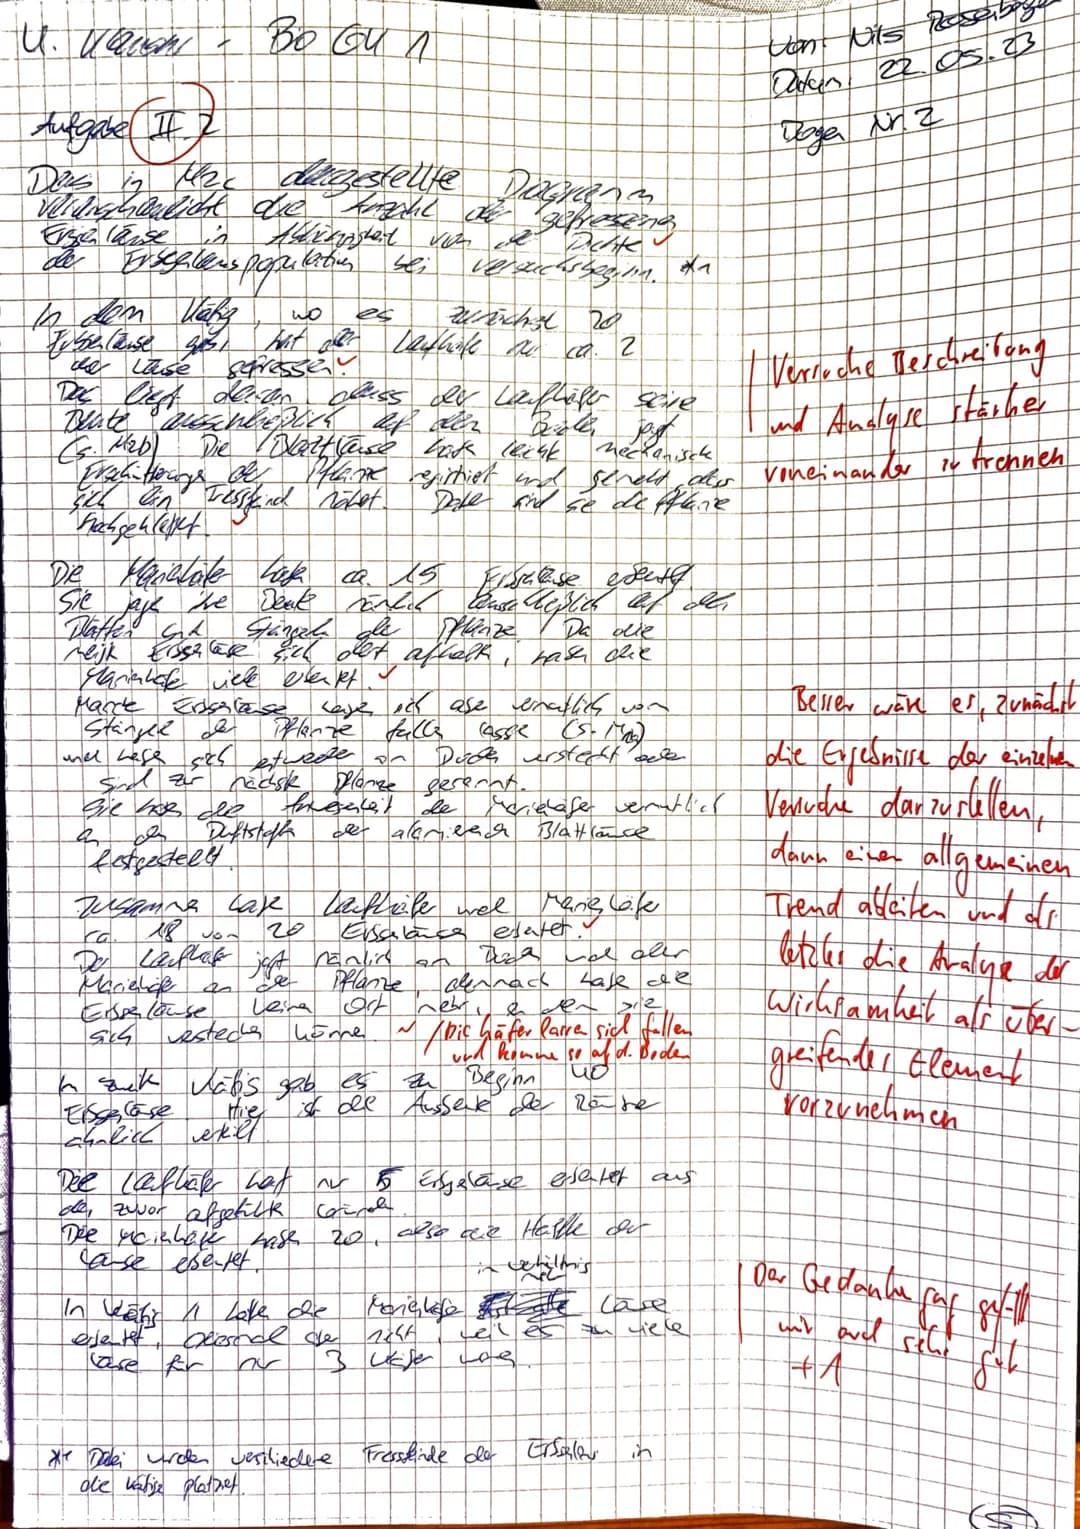 4. Klausur - Bio GK 1
Von: Nils
Datum: 22.05.23
Bogen Nr. 2
Aufgabe II.2
Das in M2c dargestellte Diagramm
veranschaulicht die Anzahl der gefressenen
Erbsenläuse in Abhängigkeit von der Dichte
der Erbsenlauspopulation bei Versuchsbeginn. *1
In dem Käfig, wo es zunächst 20
Erbsenläuse gab, hat der Laufkäfer nur ca. 2
der Läuse gefressen.
Das liegt daran, dass der Laufkäfer seine
Beute ausschließlich auf dem Boden jagt
(s. M2b) Die Blattläuse haben leicht mechanische
Erschütterungen der Pflanze registriert und gemerkt, dass
sich ein Fressfeind nähert. Daher sind sie die Pflanze
hochgeklettert.
Die Marienkäfer haben ca. 15 Erbsenläuse erbeutet.
Sie jagen ihre Beute nämlich ausschließlich auf den
Blättern und Stängeln der Pflanze. Da die
meisten Erbsenläuse sich dort aufhalten, haben die
Marienkäfer viele erbeutet.
Manche Erbsenläuse haben sich aber vermutlich vom
Stängel der Pflanze fallen lassen (s. M2a)
und haben sich entweder am Boden versteckt oder
sind zur nächsten Pflanze gerannt.
Sie haben die Anwesenheit der Marienkäfer vermutlich
an den Duftstoffen der alarmierenden Blattläuse
festgestellt.
Zusammen haben Laufkäfer und Marienkäfer
ca. 18 von 20 Erbsenläusen erbeutet.
Der Laufkäfer jagt nämlich am Boden und der
Marienkäfer an der Pflanze, demnach haben die
Erbsenläuse keinen Ort mehr, an dem sie
sich verstecken können. ~ / Die Käfer lassen sich fallen
und kommen so auf d. Boden
In zweiten Käfig gab es zu Beginn 40
Erbsenläuse. Hier ist die Ausbeute der Räuber
ähnlich verteilt.
Die Laufkäfer hat nur 5 Erbsenläuse erbeutet aus
den zuvor aufgeführten Gründen.
Die Marienkäfer haben 20, also die Hälfte der
Läuse erbeutet.
in Verhältnis
mehr
In Käfig 1 haben die Marienkäfer Läuse
erbeutet, diesmal aber nicht, weil es zu viele
Läuse für nur 3 Käfer waren.
*1 Dabei wurden verschiedene Fressfeinde der Erbsenlaus in
die Käfige platziert.
Versuche Beschreibung
und Analyse stärker
voneinander zu trennen
Besser wäre es, zunächst
die Ergebnisse der einzelnen
Versuche darzustellen,
dann einen allgemeinen
Trend ableiten und als
letztes die Analyse der
Wirksamkeit als über-
greifendes Element
vorzunehmen
Der Gedankengang gefällt
mir auch sehr gut
+1
5